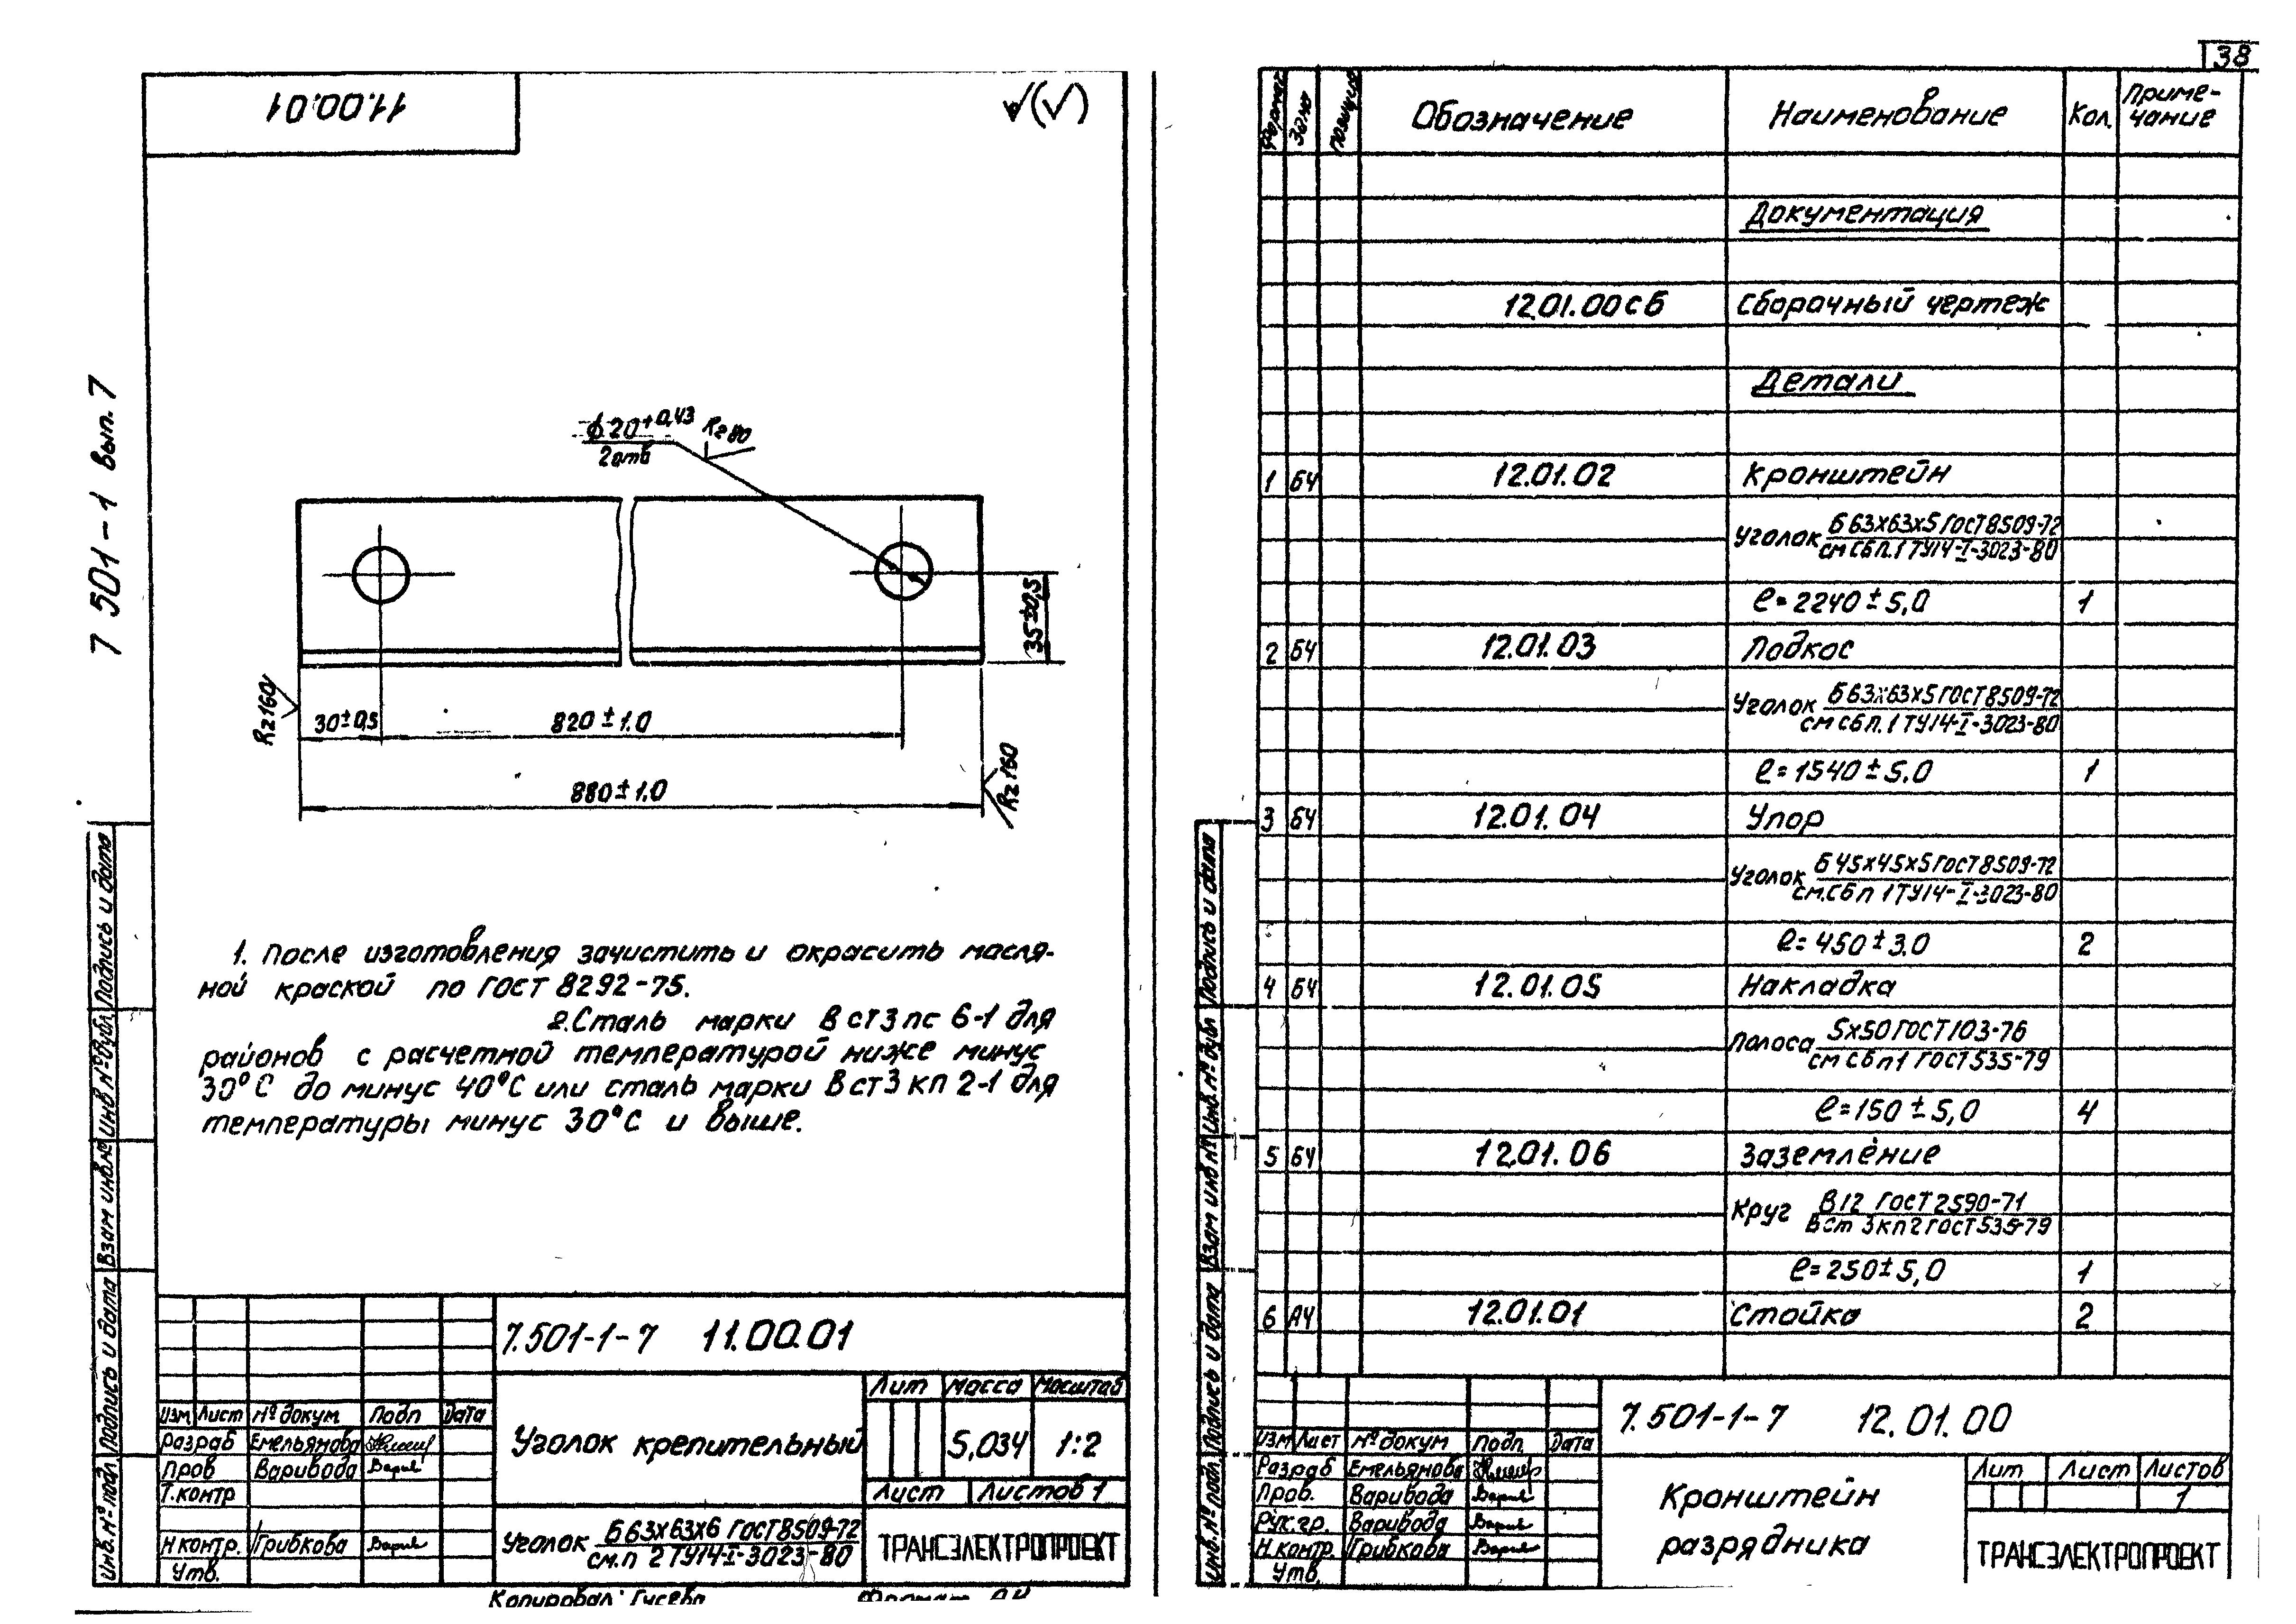 38
11.00.01
√(√)
7 501-1 вып. 7
ϕ20+0,43
2отв
Rz80
35±0,5
Rz160
30±0,5
820±1.0
Rz160
880±1.0
1. После изготовления зачистить и окрасить масля-
ной краской по ГОСТ 8292-75.
2. Сталь марки Вст3пс 6-1 для
районов с расчетной температурой ниже минус
30°С до минус 40°С или сталь марки Вст3кп 2-1 для
температуры минус 30°С и выше.
Инв. № подл. Подпись и дата Взам инв № Инв № дубл. Подпись и дата
7.501-1-7 11.00.01
Изм Лист № докум Подп Дата
Разраб Емельянова
Пров Варивода Варив
Т.контр
Н контр. Грибкова Варив
Утв.
Уголок крепительный
Лит Масса Масштаб
5,034 1:2
Лист Листов 1
Уголок Б 63х63х6 ГОСТ 8509-72
см.п 2 ТУ14-I-3023-80
ТРАНСЭЛЕКТРОПРОЕКТ
Копировал: Гусева Формат А4
Формат Зона Позиция Обозначение Наименование Кол. Приме-
чание
Документация
12.01.00СБ Сборочный чертеж
Детали
1 БЧ 12.01.02 Кронштейн
Уголок Б 63х63х5 ГОСТ 8509-72
см СБ п.1 ТУ14-I-3023-80
ℓ=2240±5,0 1
2 БЧ 12.01.03 Подкос
Уголок Б 63х63х5 ГОСТ 8509-72
см СБ п.1 ТУ14-I-3023-80
ℓ=1540±5.0 1
3 БЧ 12.01.04 Упор
Уголок Б 45х45х5 ГОСТ 8509-72
см.СБ п 1 ТУ14-I-3023-80
ℓ=450±3.0 2
4 БЧ 12.01.05 Накладка
Полоса 5х50 ГОСТ 103-76
см СБ п1 ГОСТ 535-79
ℓ=150±5,0 4
5 БЧ 12.01.06 Заземление
Круг В12 ГОСТ 2590-71
ВСт 3кп2 ГОСТ 535-79
ℓ=250±5,0 1
6 А4 12.01.01 Стойка 2
Инв. № подл. Подпись и дата Взам инв № Инв. № дубл Подпись и дата
7.501-1-7 12.01.00
Изм Лист № докум Подп. Дата
Разраб Емельянова
Пров. Варивода Варив
Рук.гр. Варивода Варив
Н.контр. Грибкова Варив
Утв.
Кронштейн
разрядника
Лит Лист Листов
1
ТРАНСЭЛЕКТРОПРОЕКТ